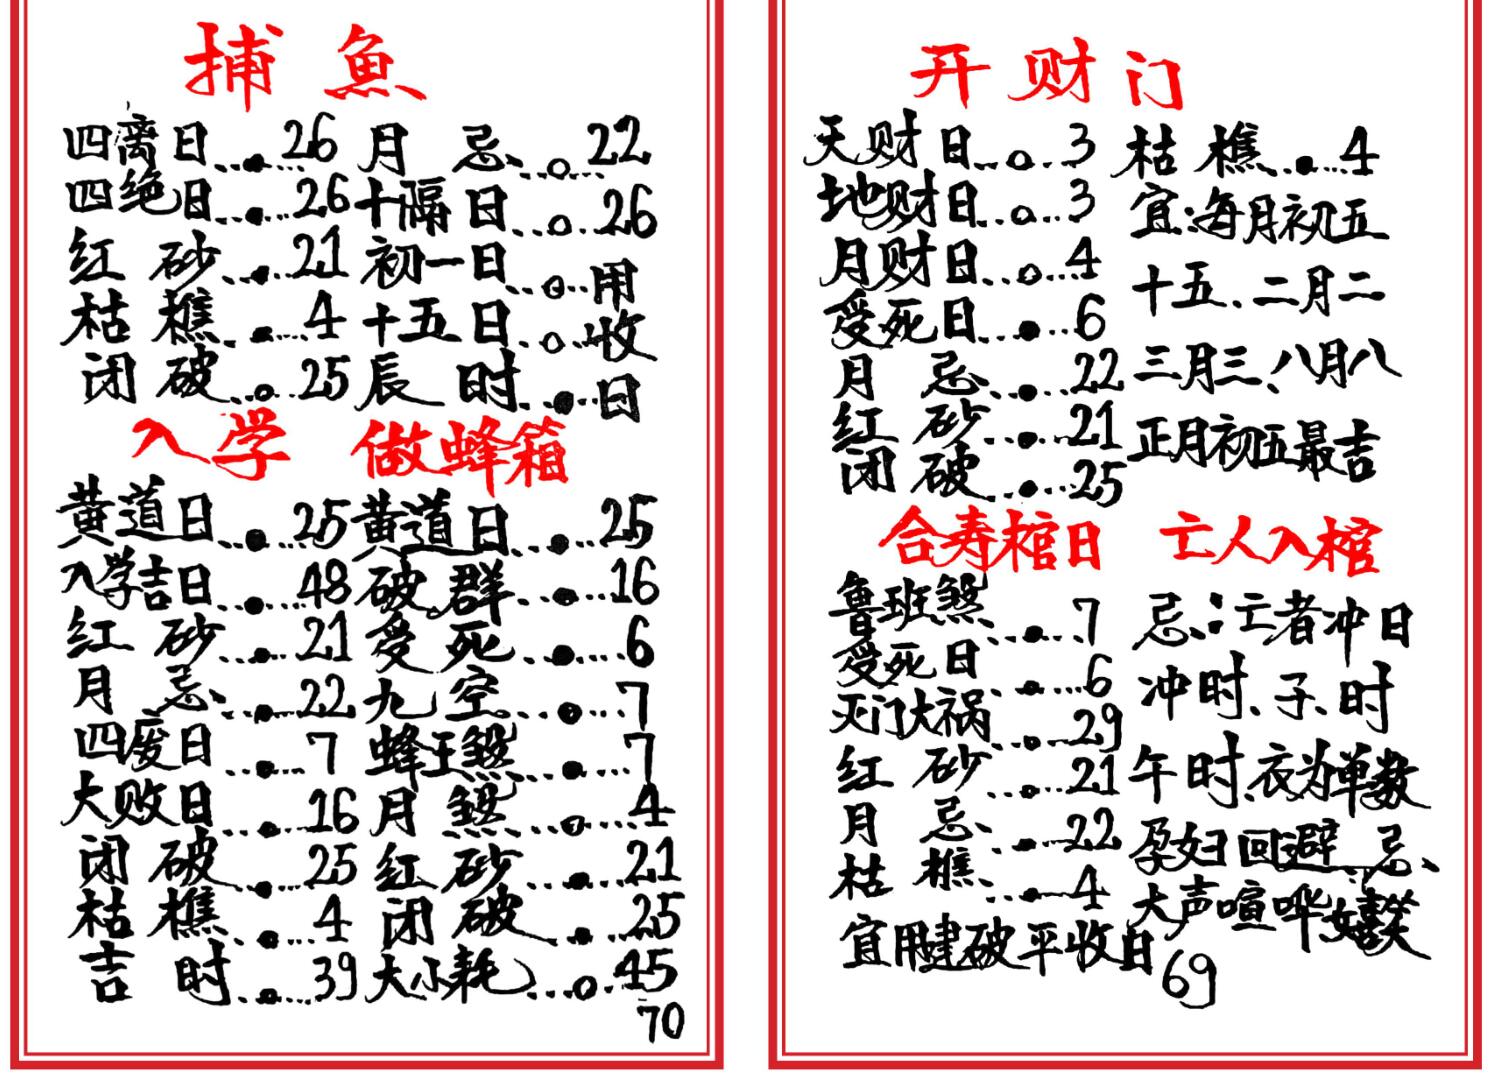 捕魚
四离日...●...26 月忌...○...22
四绝日...●...26 十隔日...○...26
红砂...●...21 初一日...○...用
枯樵...●...4 十五日...○...收
闭破...○...25 辰时...●...日
入学 做蜂箱
黄道日...●...25 黄道日...●...25
入学吉日...●...48 破群...●...16
红砂...●...21 受死...●...6
月忌...●...22 九空...●...7
四废日...●...7 蜂王煞...●...7
大败日...●...16 月煞...○...4
闭破...●...25 红砂...●...21
枯樵...●...4 闭破...●...25
吉时...●...39 大小耗...○...45
70
开财门
天财日...○...3 枯樵...●...4
地财日...○...3 宜:每月初五
月财日...○...4 十五、二月二
受死日...●...6 三月三、八月八
月忌...●...22 正月初五最吉
红砂...●...21
闭破...●...25
合寿棺日 亡人入棺
鲁班煞...●...7 忌:亡者冲日
受死日...●...6 冲时、子、时
灭门大祸...●...29 午时、衣为单数
红砂...●...21 孕妇回避 忌、
月忌...●...22 大声喧哗嬉笑
枯樵...●...4
宜用建破平收日
69